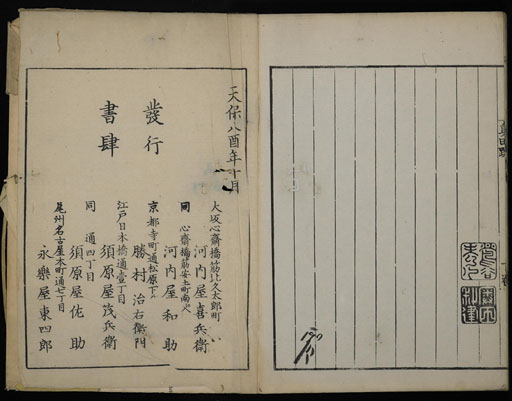 天保八酉年十月
發行
書肆
大坂心齋橋筋北久太郎町
河内屋喜兵衛
同 心齋橋筋安土町南へ入
河内屋和助
京都寺町通松原下ル
勝村治右衛門
江戸日本橋通壹丁目
須原屋茂兵衛
同 通四丁目
須原屋佐助
尾州名古屋本町通七丁目
永樂屋東四郎